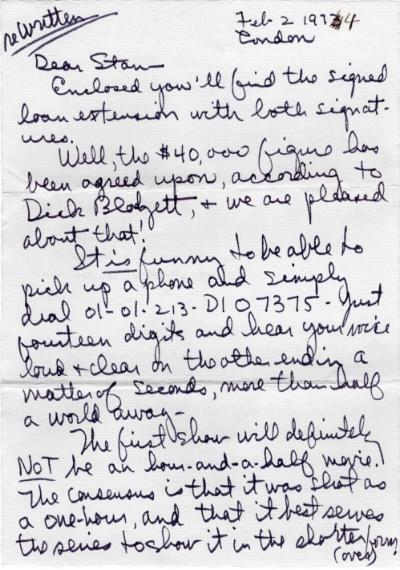 rewritten
Feb 2 1974
London
Dear Stan—
Enclosed you'll find the signed
loan extension with both signat-
ures.
Well, the $40,000 figure has
been agreed upon, according to
Dick Blodgett, & we are pleased
about that.
It is funny to be able to
pick up a phone and simply
dial 01-01-213-DI07375- Just
fourteen digits and hear your voice
loud & clear on the other end in a
matter of seconds, more than half
a world away-
The first show will definitely
NOT be an hour-and-a-half movie.
The consensus is that it was shot as
a one-hour, and that it best serves
the series to show it in the shorter form.
(over)